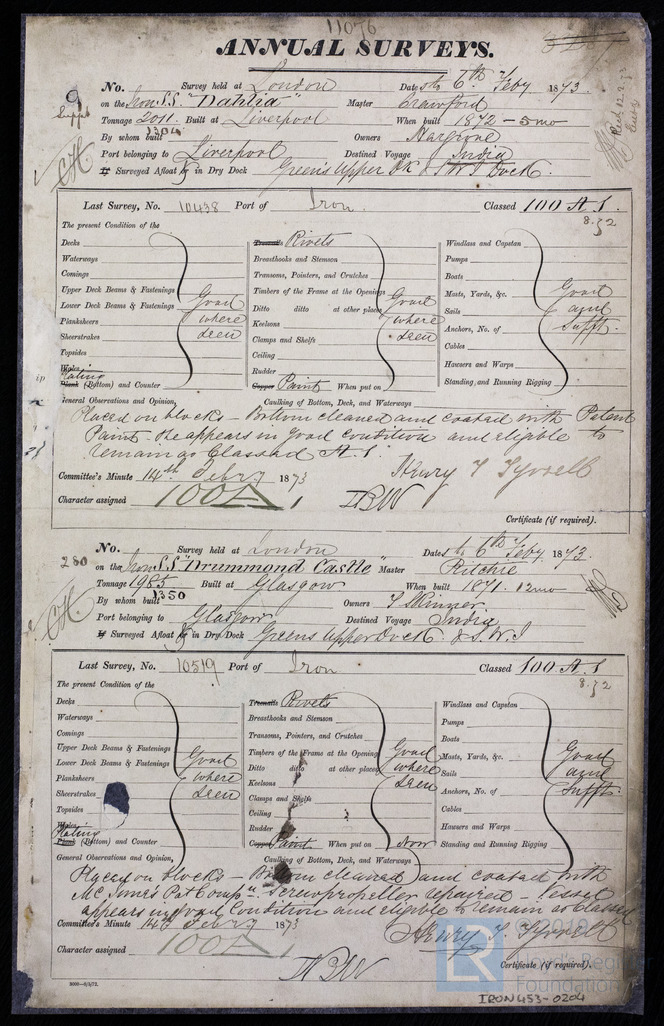 11076
ANNUAL SURVEYS.
No. Survey held at London Date 6th Feby 1873.
on the Iron S.S. "Dahlia" Master Crawford
Tonnage 2011. Built at Liverpool When built 1872 - 5 mo
1304
By whom built Owners Hargrove
Port belonging to Liverpool Destined Voyage India
If Surveyed Afloat or in Dry Dock Green's Upper Dk & S.W.I Dock.
Last Survey, No. 10438 Port of Iron. Classed 100 A.1.
8.72
The present Condition of the
Decks
Waterways
Comings
Upper Deck Beams & Fastenings
Lower Deck Beams & Fastenings
Planksheers
Sheerstrakes
Topsides
Wales
Plating
Plank (Bottom) and Counter
Good
where
seen
Treenails Rivets
Breasthooks and Stemson
Transoms, Pointers, and Crutches
Timbers of the Frame at the Openings
Ditto ditto at other places
Keelsons
Clamps and Shelfs
Ceiling
Rudder
Copper Paint When put on
Good
where
seen
Windlass and Capstan
Pumps
Boats
Masts, Yards, &c.
Sails
Anchors, No. of
Cables
Hawsers and Warps
Standing and Running Rigging
Good
and
Sufft.
General Observations and Opinion, Caulking of Bottom, Deck, and Waterways
Placed on blocks - Bottom cleaned and coated with Patent
Paint - She appears in good condition and eligible to
remain as Classed A.1.
Henry T Tyrrell
Committee's Minute 14th Feby 1873
Character assigned 100A1
Certificate (if required).
No. Survey held at London Date 6th Feby 1873.
280 on the Iron S.S. "Drummond Castle" Master Ritchie
Tonnage 1985 Built at Glasgow When built 1871. 12 mo
1350
By whom built Owners T Skinner.
Port belonging to Glasgow Destined Voyage India
If Surveyed Afloat or in Dry Dock Greens Upper Dock & S.W.I
Last Survey, No. 10519 Port of Iron Classed 100 A.1
8.72
The present Condition of the
Decks
Waterways
Comings
Upper Deck Beams & Fastenings
Lower Deck Beams & Fastenings
Planksheers
Sheerstrakes
Topsides
Wales
Plating
Plank (Bottom) and Counter
Good
where
seen
Treenails Rivets
Breasthooks and Stemson
Transoms, Pointers, and Crutches
Timbers of the Frame at the Openings
Ditto ditto at other places
Keelsons
Clamps and Shelfs
Ceiling
Rudder
Copper Paint When put on now
Good
where
seen
Windlass and Capstan
Pumps
Boats
Masts, Yards, &c.
Sails
Anchors, No. of
Cables
Hawsers and Warps
Standing and Running Rigging
Good
and
Sufft
General Observations and Opinion, Caulking of Bottom, Deck, and Waterways
Placed on blocks - Bottom cleaned and coated with
Mc Innes's Pat Compn - Screwpropeller repaired - Vessel
appears in good Condition and eligible to remain as Classed
Henry T. Tyrrell
Committee's Minute 14th Feby 1873
Character assigned 100A1
Certificate (if required).
LR Lloyd's Register
Foundation
IRON453-0204